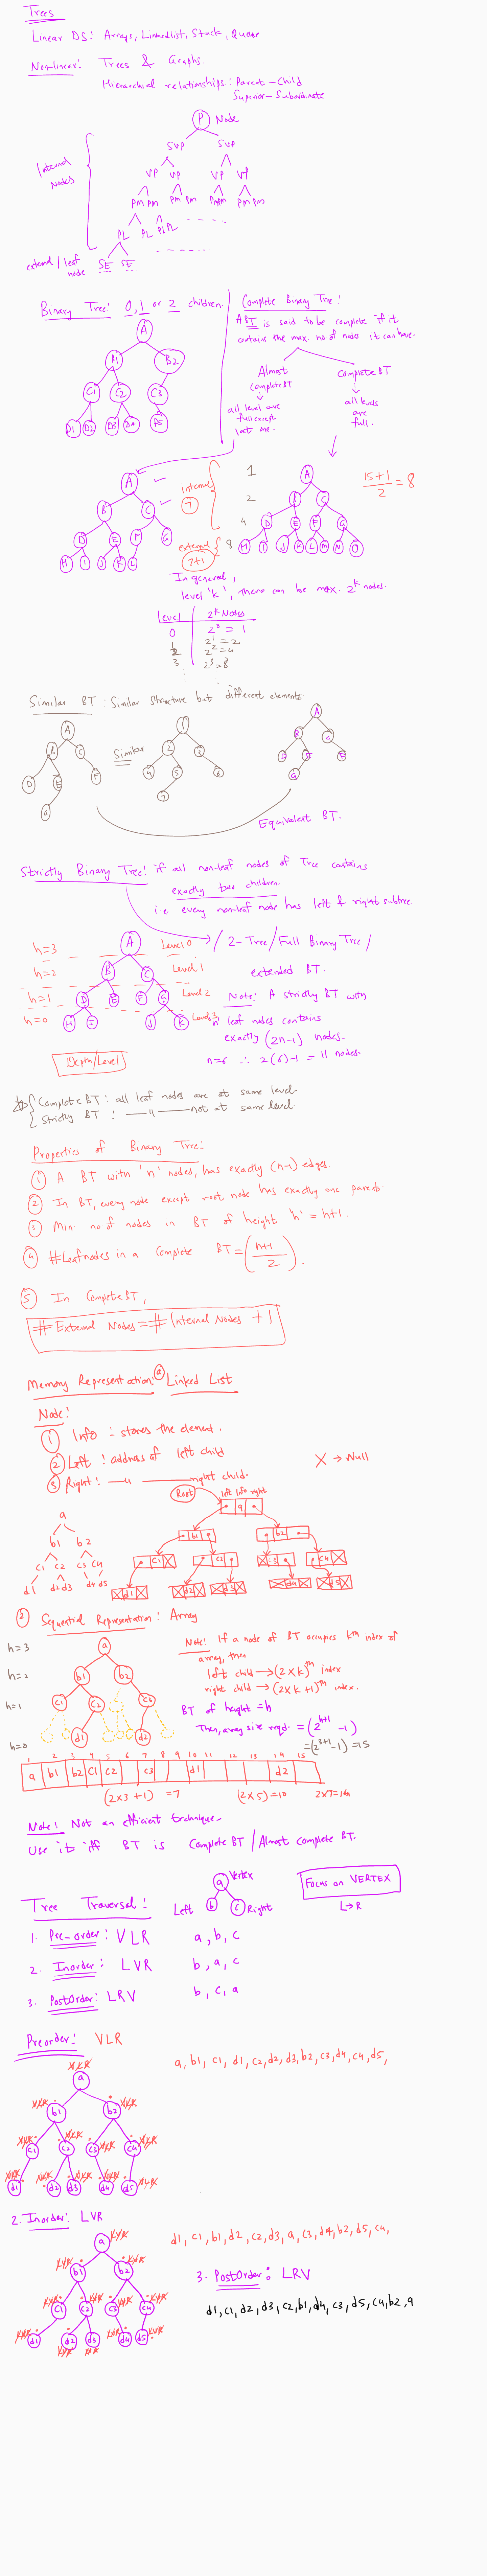 Trees
Linear DS: Arrays, Linkedlist, Stack, Queue
Non-linear: Trees & Graphs.
Hierarchial relationships: Parent-Child
Superior-Subordinate
P Node
SVP SVP
Internal
Nodes
VP VP VP VP
PM PM PM PM PM PM PM PM
PL PL PL PL
external/leaf
node
SE SE
Binary Tree: 0, 1 or 2 children.
A
B1 B2
C1 C2 C3
D1 D2 D3 D4 D5
Complete Binary Tree:
A BT is said to be complete if it
contains the max. no of nodes it can have.
Almost
Complete BT
all level are
full except
last one.
Complete BT
all levels
are
full.
A
B C
D E F G
H I J K L
internal
7
external
7+1
1
2
4
8
A
B C
D E F G
H I J K L M N O
15+1
2
= 8
In general,
level 'k', there can be max. 2^k nodes.
level 2^k Nodes
0 2^0 = 1
1 2^1 = 2
2 2^2 = 4
3 2^3 = 8
Similar BT: Similar Structure but different elements
A
B C
D E F
G
Similar
1
2 3
4 5 6
7
A
B C
D E F
G
Equivalent BT.
Strictly Binary Tree: if all non-leaf nodes of Tree contains
exactly two children.
i.e every non-leaf node has left & right subtree.
/ 2-Tree / Full Binary Tree /
extended BT.
h=3 A Level 0
h=2 B C Level 1
h=1 D E F G Level 2
h=0 H I J K Level 3
Note: A strictly BT with
'n' leaf nodes contains
exactly (2n-1) nodes.
n=6 ∴ 2(6)-1 = 11 nodes.
Depth/Level
Complete BT: all leaf nodes are at same level.
Strictly BT: —— 11 —— not at same level.
Properties of Binary Tree:
1 A BT with 'n' nodes, has exactly (n-1) edges.
2 In BT, every node except root node has exactly one parent.
3 Min. no of nodes in BT of height 'h' = h+1.
4 #Leafnodes in a Complete BT = (n+1 / 2).
5 In Complete BT,
# External Nodes = # Internal Nodes + 1
Memory Representation: 1 Linked List
Node:
1 Info : stores the element.
2 Left : address of left child
3 Right: — 11 — right child.
X → Null
Root left Info right
a
b1 b2
c1 c2 c3 c4
d1 d2 d3 d4 d5
a
b1 b2
c1 c2 c3 c4
d1 d2 d3 d4 d5
2 Sequential Representation: Array
h=3
h=2
h=1
h=0
a
b1 b2
c1 c2 c3
d1 d2
Note: If a node of BT occupies kth index of
array, then
left child → (2×k)th index
right child → (2×k+1)th index.
BT of height = h
Then, array size reqd. = (2^(h+1) - 1)
= (2^(3+1) - 1) = 15
1 2 3 4 5 6 7 8 9 10 11 12 13 14 15
a b1 b2 c1 c2 c3 d1 d2
(2×3+1) = 7 (2×5) = 10 2×7=14
Note: Not an efficient technique.
Use it iff BT is Complete BT / Almost complete BT.
Tree Traversal:
a Vertex
Left b c Right
Focus on VERTEX
L→R
1. Pre-order: VLR a, b, c
2. Inorder: LVR b, a, c
3. PostOrder: LRV b, c, a
Preorder: VLR
a, b1, c1, d1, c2, d2, d3, b2, c3, d4, c4, d5,
a
b1 b2
c1 c2 c3 c4
d1 d2 d3 d4 d5
2. Inorder: LVR
d1, c1, b1, d2, c2, d3, a, c3, d4, b2, d5, c4,
a
b1 b2
c1 c2 c3 c4
d1 d2 d3 d4 d5
3. PostOrder: LRV
d1, c1, d2, d3, c2, b1, d4, c3, d5, c4, b2, a